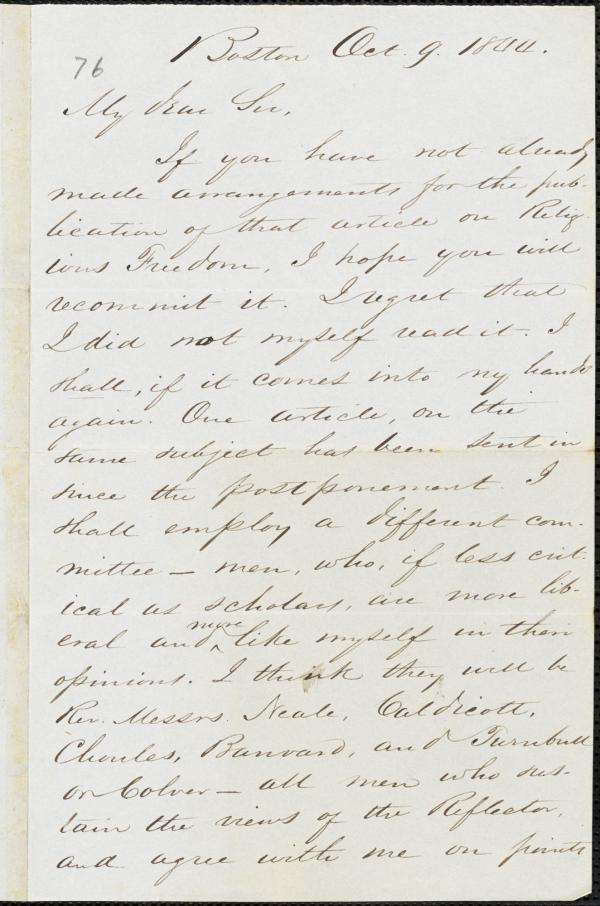 76
Boston Oct. 9. 1844.
My dear Sir,
If you have not already
made arrangements for the pub-
lication of that article on Relig-
ious Freedom, I hope you will
recommit it. I regret that
I did not myself read it. I
shall, if it comes into my hands
again. One article, on the
same subject has been sent in
since the postponement. I
shall employ a different com-
mittee — men, who, if less crit-
ical as scholars, are more lib-
eral and more like myself in their
opinions. I think they will be
Rev. Messrs. Neale, Caldicott,
Choules, Banvard, and Turnbull
or Colver — all men who sus-
tain the views of the Reflector,
and agree with me on points